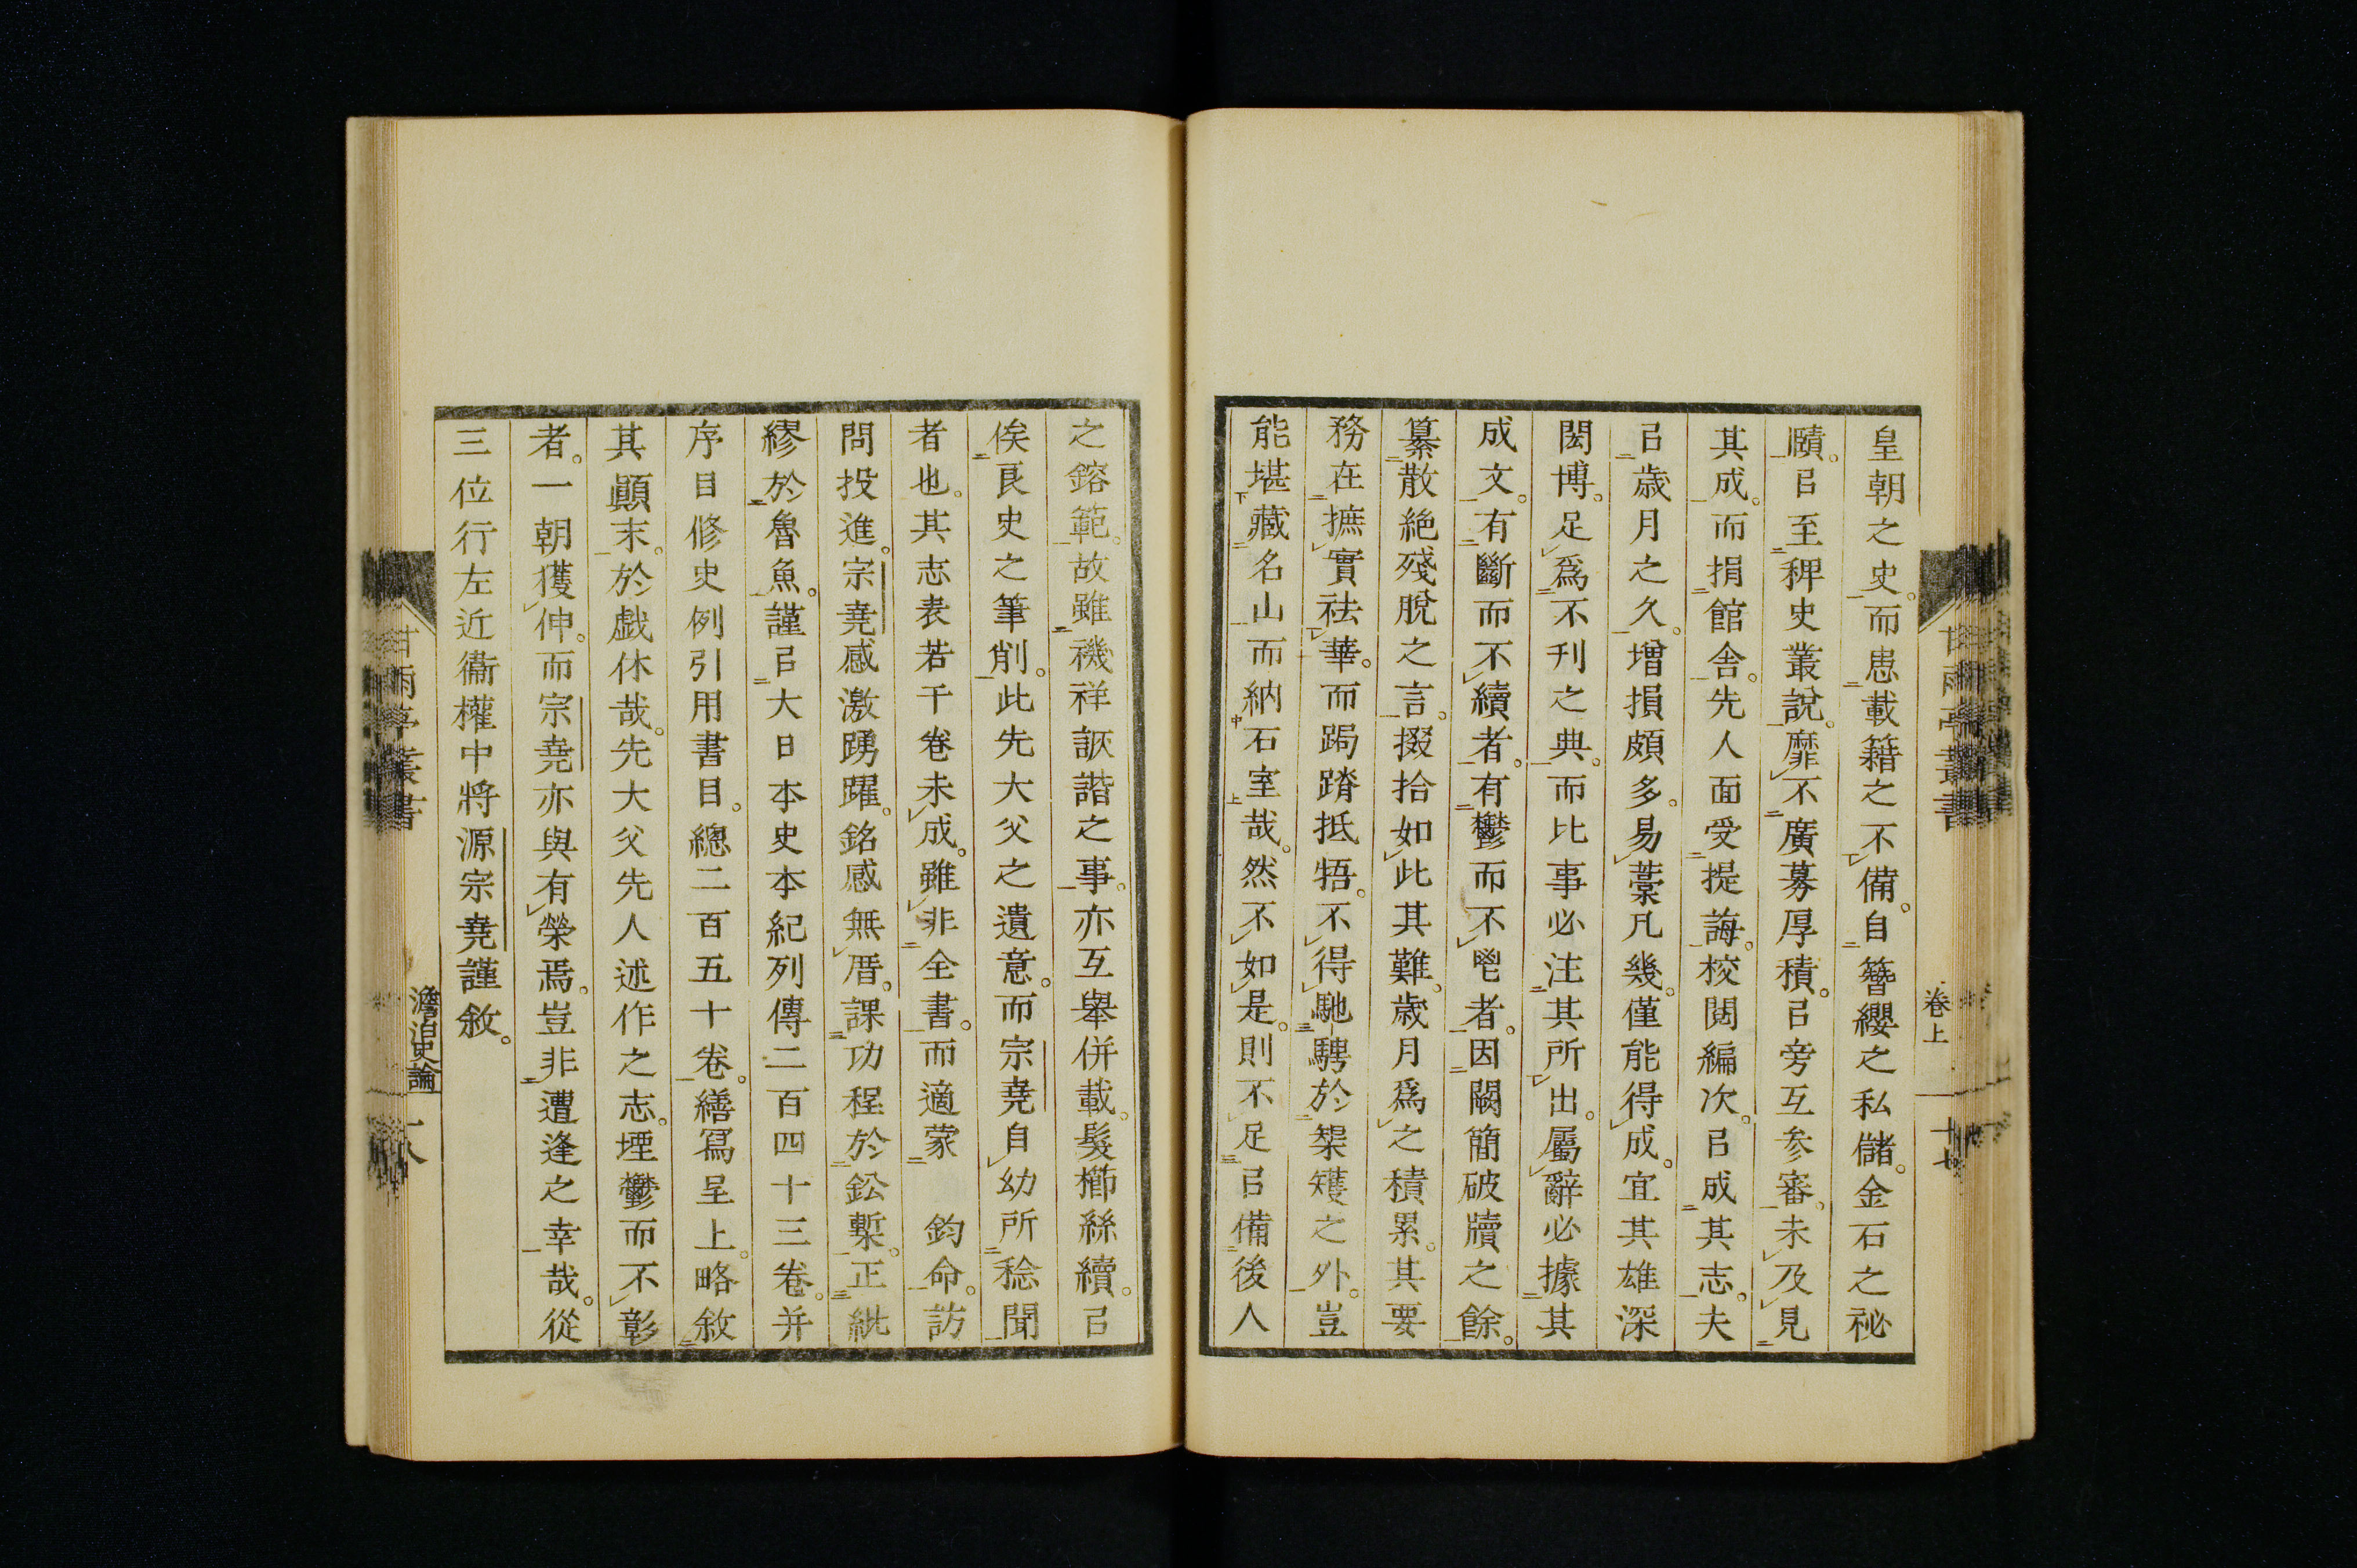 皇朝之史。而患載籍之不備。自簪纓之私儲。金石之祕
賾。㠯至稗史叢說。靡不廣募厚積。㠯旁互参審。未及見
其成。而捐館舍。先人面受提誨。校閱編次。㠯成其志。夫
㠯歳月之久。增損頗多。易藁凡幾。僅能得成。宜其雄深
閎博。足爲不刊之典。而比事必注其所出。屬辭必據其
成文。有斷而不續者。有鬱而不鬯者。因闕簡破牘之餘。
纂散絶殘脫之言。掇拾如此其難。歳月爲之積累。其要
務在摭實祛華。而跼蹐抵牾。不得馳騁於榘矱之外。豈
能堪藏名山而納石室哉。然不如是。則不足㠯備後人
卷上
十七
甘雨亭叢書
之鎔範。故雖禨祥詼諧之事。亦互舉併載。髮櫛絲續。㠯
俟良史之筆削。此先大父之遺意。而宗堯自幼所稔聞
者也。其志表若干卷未成。雖非全書。而適蒙　鈞命。訪
問投進。宗堯感激踴躍。銘感無厝。課功程於鈆槧。正紕
繆於魯魚。謹㠯大日本史本紀列傳二百四十三卷。并
序目修史例引用書目。總二百五十卷。繕寫呈上。略敘
其顚末。於戯休哉。先大父先人述作之志。堙鬱而不彰
者。一朝獲伸。而宗堯亦與有榮焉。豈非遭逢之幸哉。從
三位行左近衞權中將源宗堯謹敘。
甘雨亭叢書
澹泊史論
十八